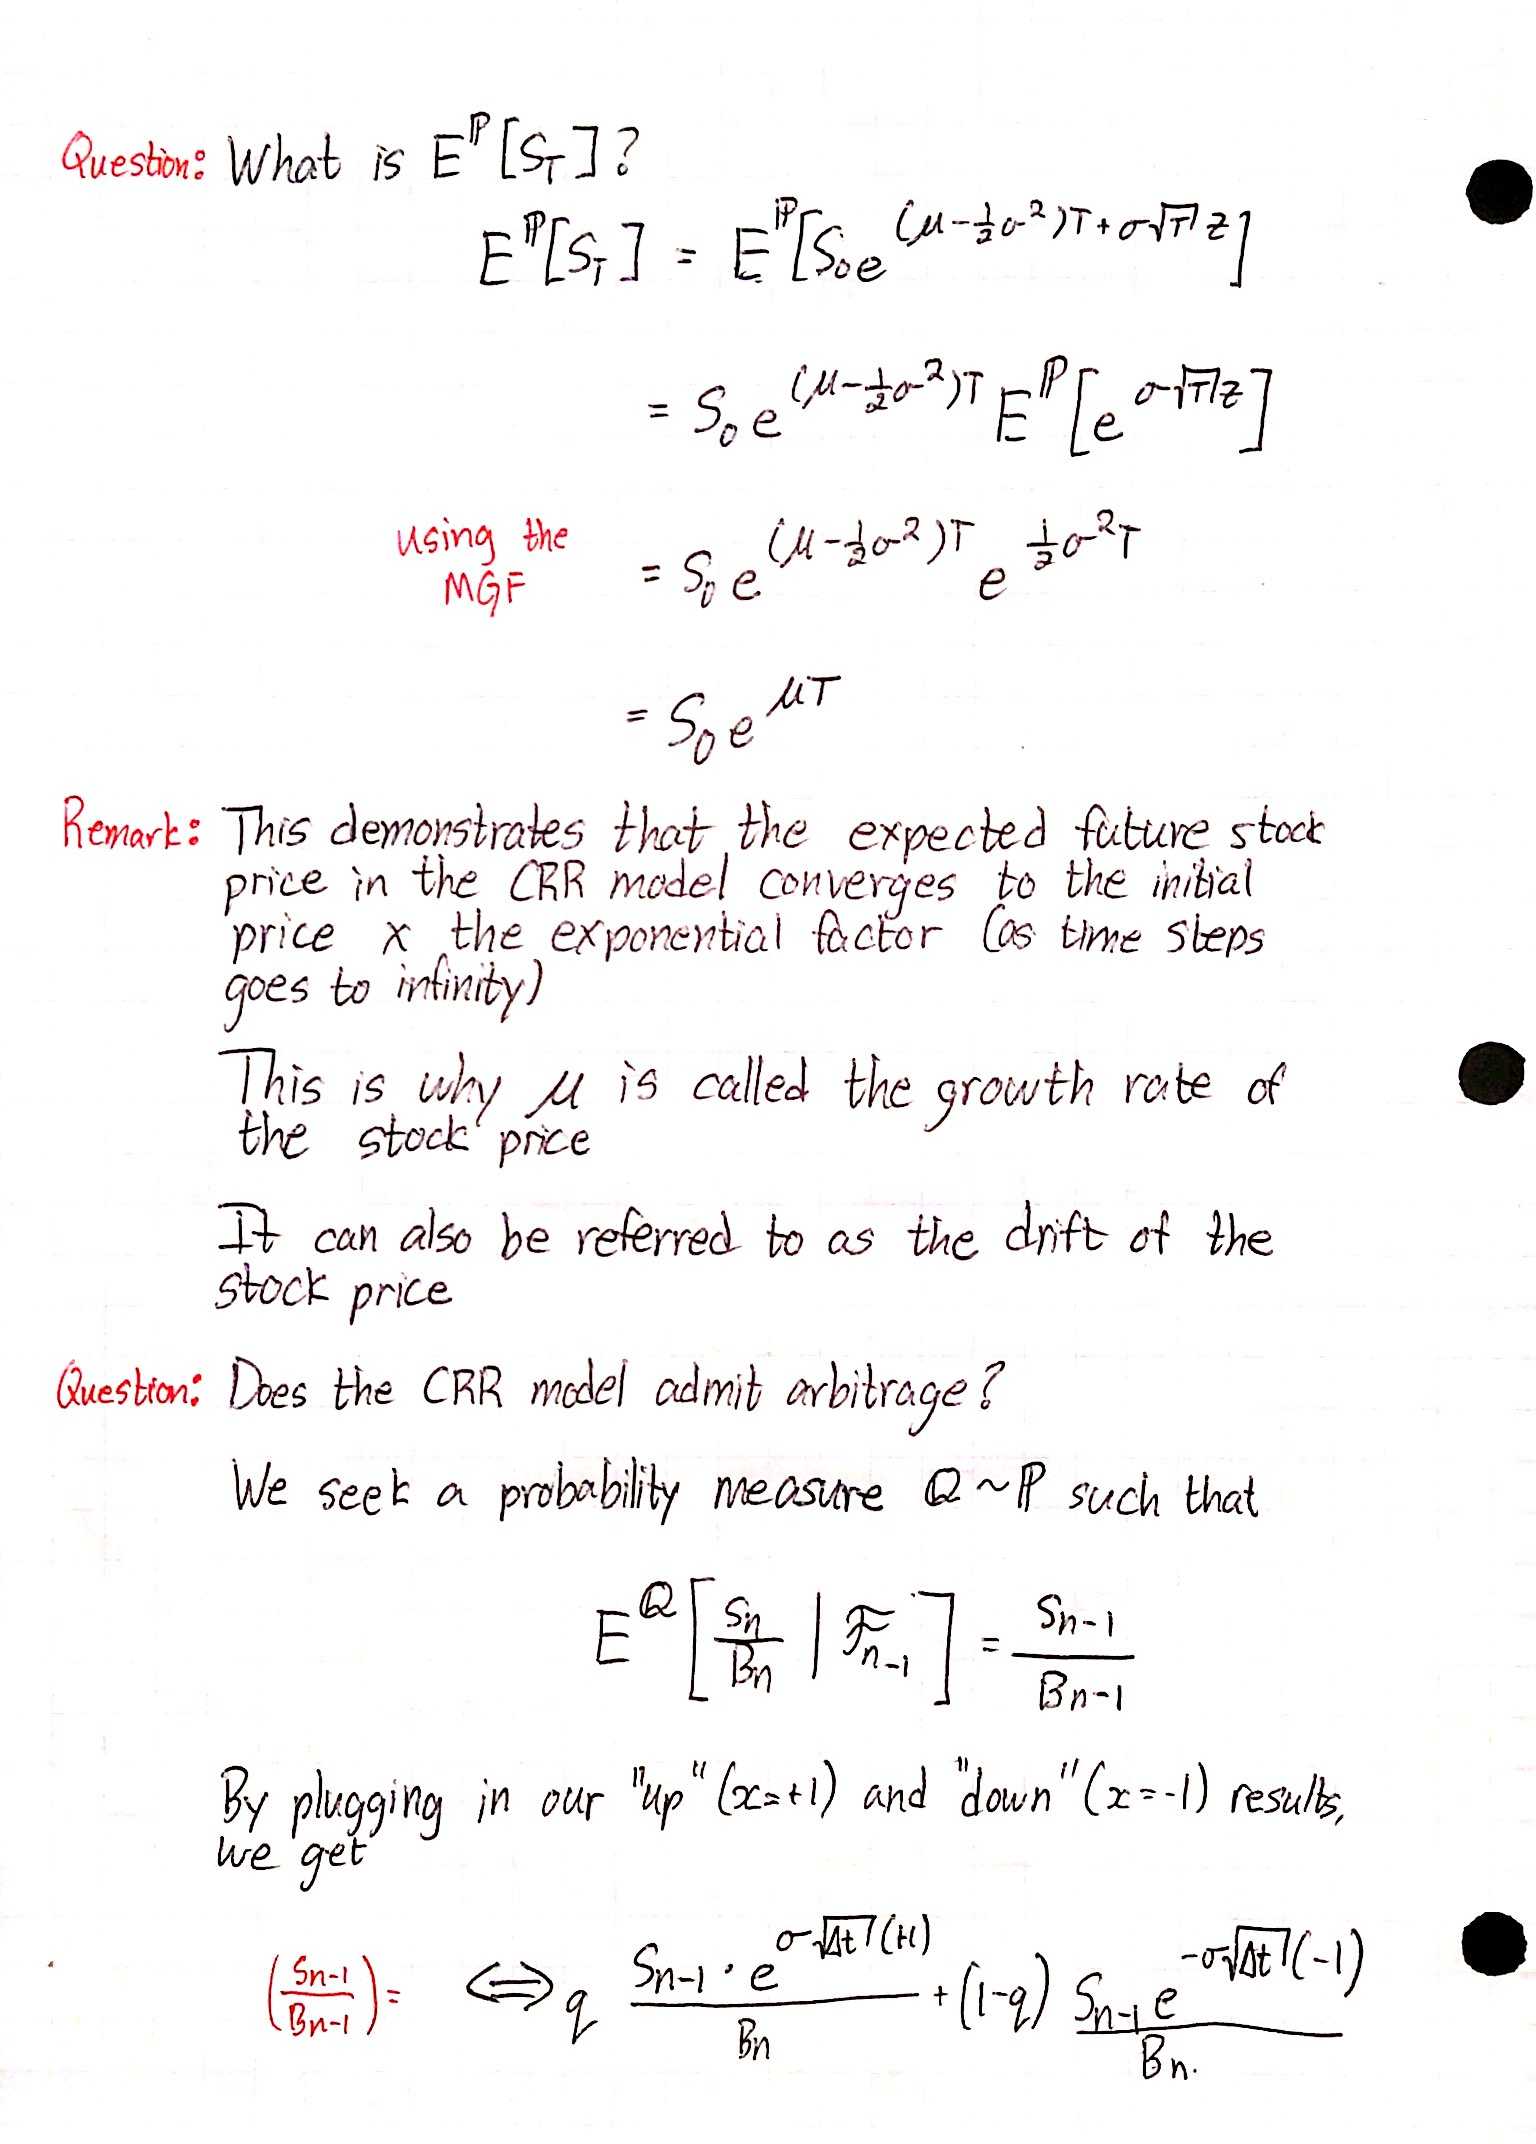 Question: What is E^ℙ[S_T]?
E^ℙ[S_T] = E^ℙ[S_0 e^{(μ-½σ²)T+σ√T Z}]
= S_0 e^{(μ-½σ²)T} E^ℙ[e^{σ√T Z}]
using the MGF = S_0 e^{(μ-½σ²)T} e^{½σ²T}
= S_0 e^{μT}
Remark: This demonstrates that the expected future stock
price in the CRR model converges to the initial
price x the exponential factor (as time steps
goes to infinity)
This is why μ is called the growth rate of
the stock price
It can also be referred to as the drift of the
stock price
Question: Does the CRR model admit arbitrage?
We seek a probability measure ℚ~ℙ such that
E^ℚ[S_n/B_n | ℱ_{n-1}] = S_{n-1}/B_{n-1}
By plugging in our "up" (x=+1) and "down" (x=-1) results,
we get
(S_{n-1}/B_{n-1}) = ⇔ q S_{n-1}·e^{σ√Δt (+1)}/B_n + (1-q) S_{n-1} e^{-σ√Δt (-1)}/B_n.